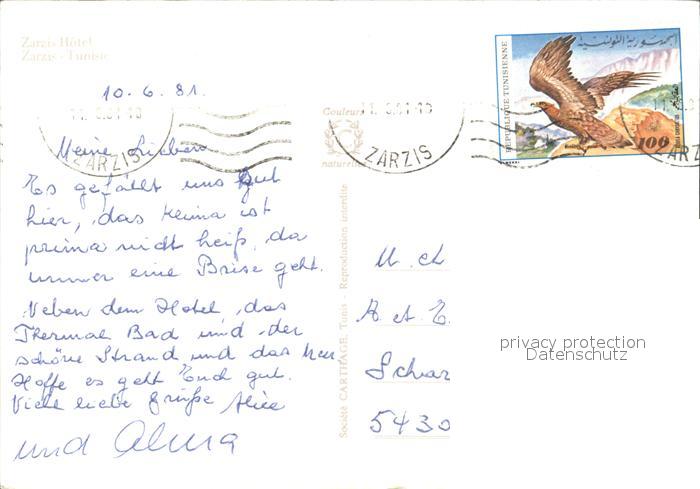 Zarzis Hôtel
Zarzis - Tunisie
10.6.81.
Meine Lieben
Es gefällt uns gut
hier, das Klima ist
prima nicht heiß, da
immer eine Brise geht.
Neben dem Hotel, das
Thermal Bad und der
schöne Strand und das Meer
Hoffe es geht Euch gut.
Viele liebe Grüße Alice
und Alma
Couleurs
naturelles
Société CARTHAGE, Tunis - Reproduction interdite
11.6.81-18
ZARZIS
11.6.81-18
ZARZIS
REPUBLIQUE TUNISIENNE
الجمهورية التونسية
100
ZARZIS
M. et
A. et E.
Schwar
5430
privacy protection
Datenschutz